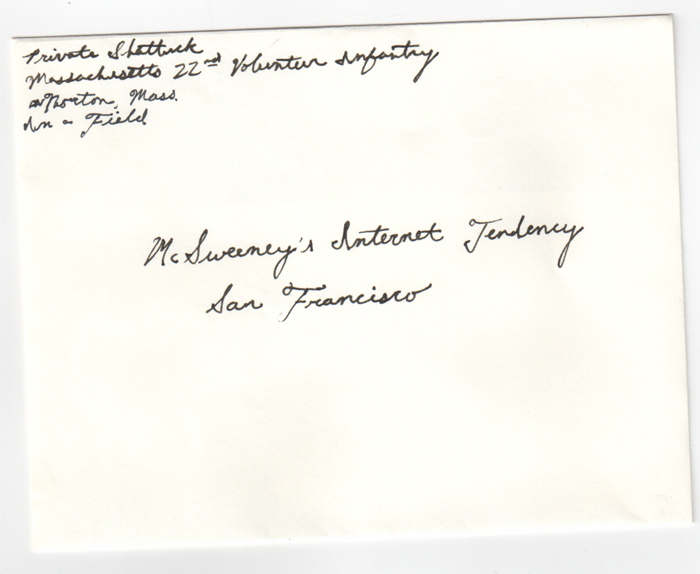 Private Shattuck
Massachusetts 22nd Volunteer Infantry
Norton, Mass.
In a Field
McSweeney's Internet Tendency
San Francisco